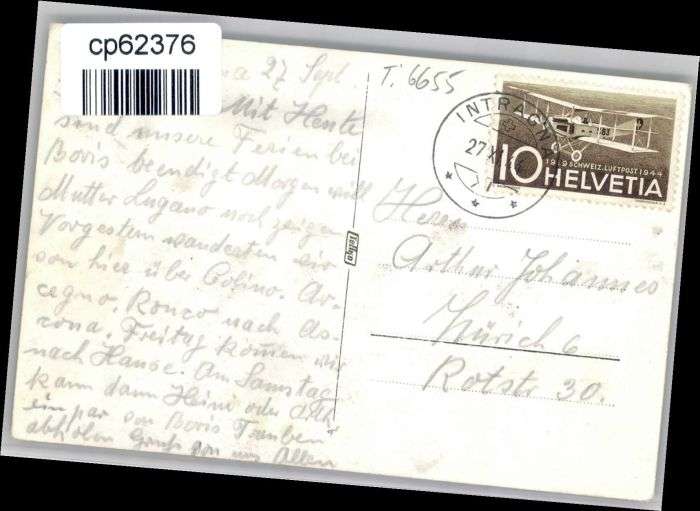 cp62376
27 Sept.
Mit Heute
sind unsere Ferien bei
Boris beendigt Morgen will
Mutter Lugano noch zeigen
Vorgestern wanderten wir
von hier über Golino. Ar-
cegno, Ronco nach As-
cona. Freitag kommen wir
nach Hause. Am Samstag
kann dann Heini oder
ein par von Boris Trauben
abholen Gruss von uns Allen
T. 6655
INTRAGNA
27
10
1919 SCHWEIZ. LUFTPOST 1944
HELVETIA
Herrn
Arthur Johannes
Zürich 6
Rotstr 30.